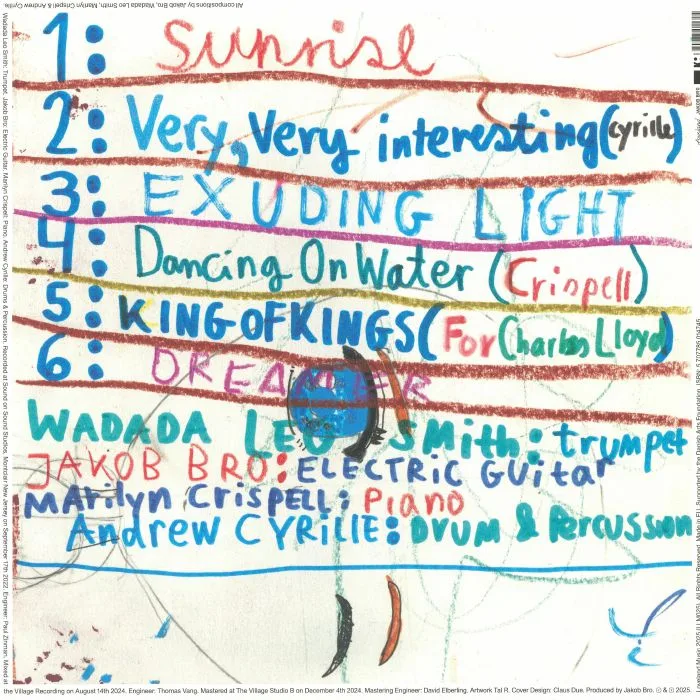 All compositions by Jakob Bro, Wadada Leo Smith, Marilyn Crispell & Andrew Cyrille.
1: Sunrise
2: Very, Very interesting (cyrille)
3: EXUDING LIGHT
4: Dancing On Water (Crispell)
5: KING OF KINGS (For Charles Lloyd)
6: DREAMER
WADADA LEO SMith: trumpet
JAKOB BRO: ELECTRIC GUitar
MARilyn CRISPELL: PIano
Andrew CYRIllE: DRUM & PERCUSSION
Wadada Leo Smith: Trumpet, Jakob Bro: Electric Guitar, Marilyn Crispell: Piano, Andrew Cyrille: Drums & Percussion. Recorded at Sound on Sound Studios, Montclair New Jersey on September 17th 2022. Engineer: Paul Zinman. Mixed at
the Village Recording on August 14th 2024. Engineer: Thomas Vang. Mastered at The Village Studio B on December 4th 2024. Mastering Engineer: David Elberling. Artwork Tal R. Cover Design: Claus Due. Produced by Jakob Bro. ℗ & © 2025.
Music 2025 All Rights Reserved. Made in EU. Supported by the Danish Arts Foundation.